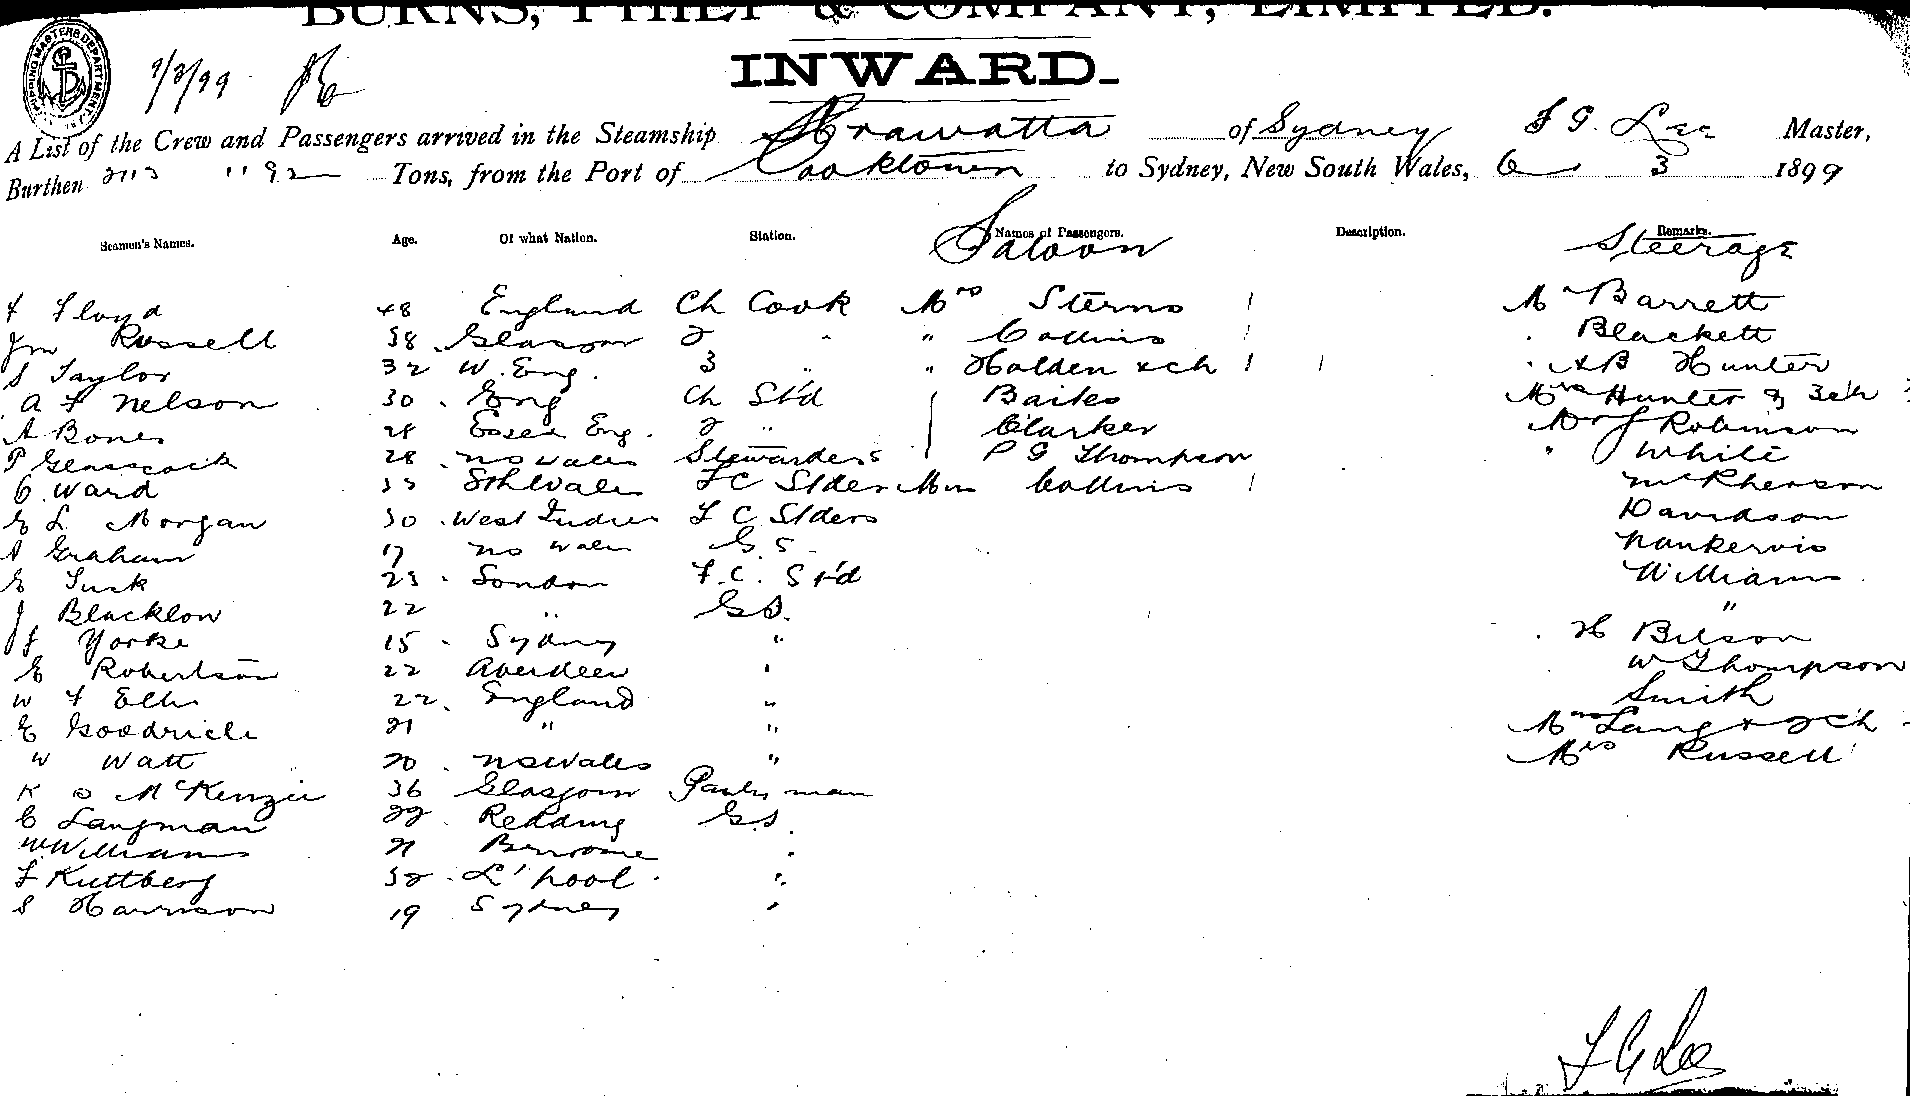 BURNS, PHILP & COMPANY, LIMITED.
INWARD.
SHIPPING MASTERS DEPARTMENT
7/3/99
A List of the Crew and Passengers arrived in the Steamship Arawatta of Sydney F G. Lee Master,
Burthen 2113 1192 Tons, from the Port of Cooktown to Sydney, New South Wales, 6 3 1899
Seamen's Names. Age. Of what Nation. Station. Names of Passengers. Description. Remarks.
Saloon Steerage
F Floyd 48 England Ch Cook Mrs Sterns 1 Mr Barrett
Jm Russell 38 Glasgow 2 " " Collins 1 Blackett
S Taylor 32 W. Eng. 3 " " Holden & ch 1 1 " A B Hunter
A F Nelson 30 Eng Ch St'd Mrs Hunter & 3 ch
A Bones 28 Essex Eng. 2 " Clarker Mr J Robinson
P Glasscock 28 N S Wales Stewardess P G Thompson " J White
C. Ward Sth Wales F C Stdess Miss Collins 1 McPherson
E L Morgan 30 West Indies F C Stders Davidson
A Graham 17 N S Wales G. S. Nankervis
E Tusk 23 London F. C. St'd Williams
J Blacklow 22 " G S. "
J Yorke 15 Sydney " H Bilson
E Robertson 22 Aberdeen " W Thompson
W F Ellis 22 England " Smith
E Goodrich 21 " " Mrs Lang & 2 ch
W Watt 20 N S Wales " Mrs Russell
K O McKenzie 36 Glasgow Pantryman
C Langman 22 Redding G S.
W Williams 21 "
F Kuttberg 32 L'pool "
S Harrison 19 Sydney "
F G Lee